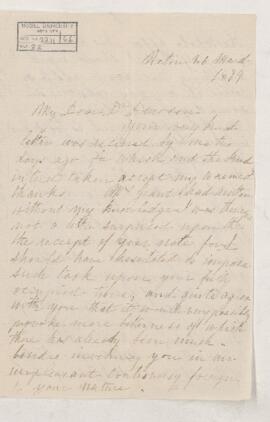 McGILL UNIVERSITY
ACC. NO.
REF.
Pictou 26 March
1879
My Dear Dr Dawson
Your very kind
letter was received by me two
days ago for which and the kind
interest taken accept my warmest
thanks. Mr Grant had written
without my knowledge I was therefore
not a little surprised upon
the receipt of your note for I
should have hesitated to impose
such task upon your fully
occupied time, and quite agree
with you that it would very possibly
provoke more bitterness of which
there has already been much
besides involving you in an
unpleasant controversy foreign
to your nature.